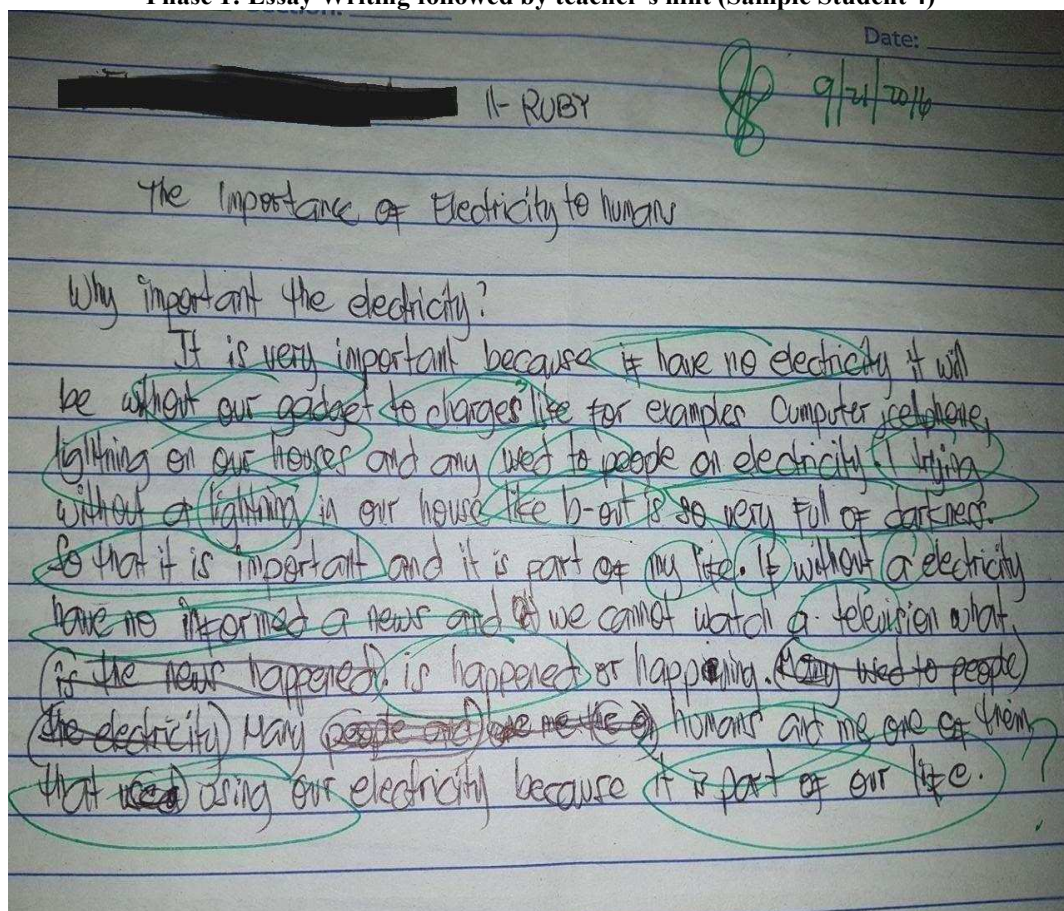 Phase 1: Essay Writing followed by teacher's hint (Sample Student 4)
Date:
11- RUBY
9/21/2016
The Importance of Electricity to humans
Why important the electricity?
It is very important because if have no electricity it will
be without our gadget to charges like for examples Cumputer, cellphone,
lightning on our houses and any used to people on electricity. I trying
without a lightning in our house like b-out is so very ful of darkness.
So that it is important and it is part of my life. If without a electricity
have no informed a news and we cannot watch a television what
is the news happened is happened or happining. Many used to people
the electricity Many people and humans and me one of them
that used using our electricity because it is part of our life.
?